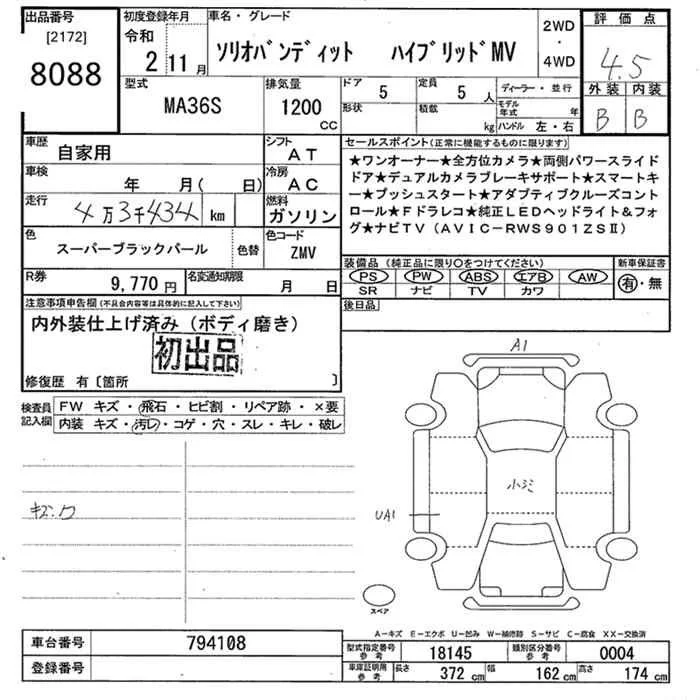 出品番号
[2172]
8088
初度登録年月
令和
2 11月
車名・グレード
ソリオバンディット ハイブリッドMV
2WD
・
4WD
評価点
4.5
外装 内装
B B
型式
MA36S
排気量
1200
CC
ドア
5
形状
定員
5人
積載
kg
ディーラー・並行
モデル年式 年
ハンドル 左・右
車歴
自家用
シフト
AT
車検
年 月( 日)
冷房
AC
走行
4万3千434 km
燃料
ガソリン
色
スーパーブラックパール
色替
色コード
ZMV
R券
9,770円
名変通知期限
月 日
セールスポイント(正常に機能するものに限ります)
★ワンオーナー★全方位カメラ★両側パワースライド
ドア★デュアルカメラブレーキサポート★スマートキ
ー★プッシュスタート★アダプティブクルーズコント
ロール★Fドラレコ★純正LEDヘッドライト&フォ
グ★ナビTV(AVIC-RWS901ZSⅡ)
装備品(純正品に限り○をつけてください)
PS PW ABS エアB AW
SR ナビ TV カワ
新車保証書
有・無
後日品
注意事項申告欄(不具合内容等は具体的に記入して下さい)
内外装仕上げ済み(ボディ磨き)
初出品
修復歴 有〔箇所 〕
検査員
記入欄
FW キズ・飛石・ヒビ割・リペア跡・×要
内装 キズ・汚レ・コゲ・穴・スレ・キレ・破レ
キズ・ワ
A1
小キズ
UA1
スペア
A-キズ E-エクボ U-凹み W-補修跡 S-サビ C-腐食 XX-交換済
車台番号
794108
登録番号
型式指定番号
参考
18145
類別区分番号
参考
0004
車庫証明用
参考
長さ
372cm
幅
162cm
高さ
174cm